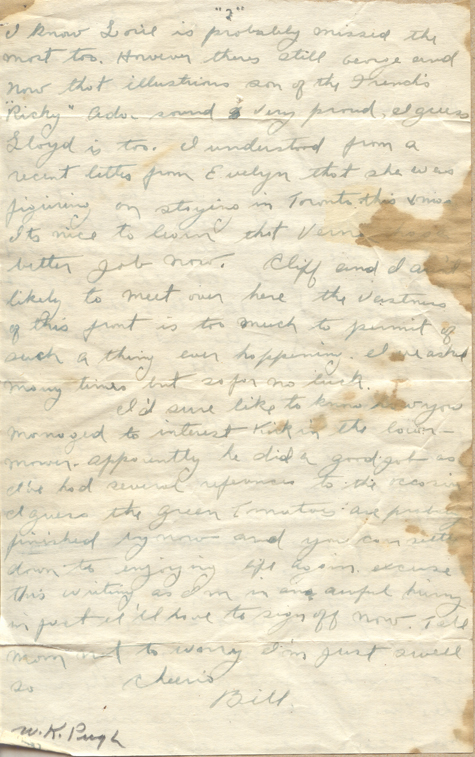 "2"
I know Lorie is probably missed the
most too. However theres still George and
now that illustrious son of the Trends
"Ricky" Ada sounds very proud, I guess
Lloyd is too. I understood from a
recent letter from Evelyn that she was
figuring on staying in Toronto this xmas
Its nice to learn that Verne has a
better job now. Cliff and I aren't
likely to meet over here the vastness
of this front is too much to permit of
such a thing ever happening. I've asked
many times but so far no luck.
I'd sure like to know how you
managed to interest in the lawn-
mower. apparently he did a good job as
I've had several references to the occasion
I guess the green Tomatoes are probably
finished by now and you can settle
down to enjoying life again. excuse
this writing as I'm in an awful hurry
in fact I'll have to sign off now. Tell
mom not to worry I'm just swell
so Cheerio
Bill.
W.K. Pugh